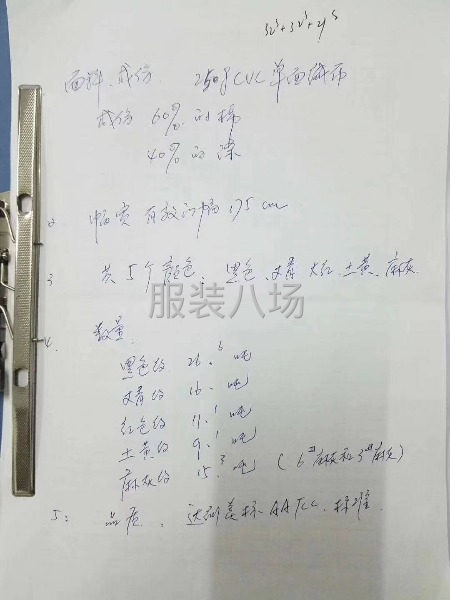 32ˢ+32ˢ+4ˢ
面料.成份 250g CVC 单面绒布
成份 60% 的棉
40% 的涤
2 幅宽 有效门幅 175 cm
3 共5个颜色, 黑色.丈青 大红.土黄.麻灰
服装八场
4. 数量
黑色的 26.⁵ 吨
丈青的 16. 吨
红色的 11.¹ 吨
土黄的 9.¹ 吨
麻灰的 15.³ 吨 (6 麻灰和3 麻灰)
5: 品质, 达到美标 AATCC.标准.